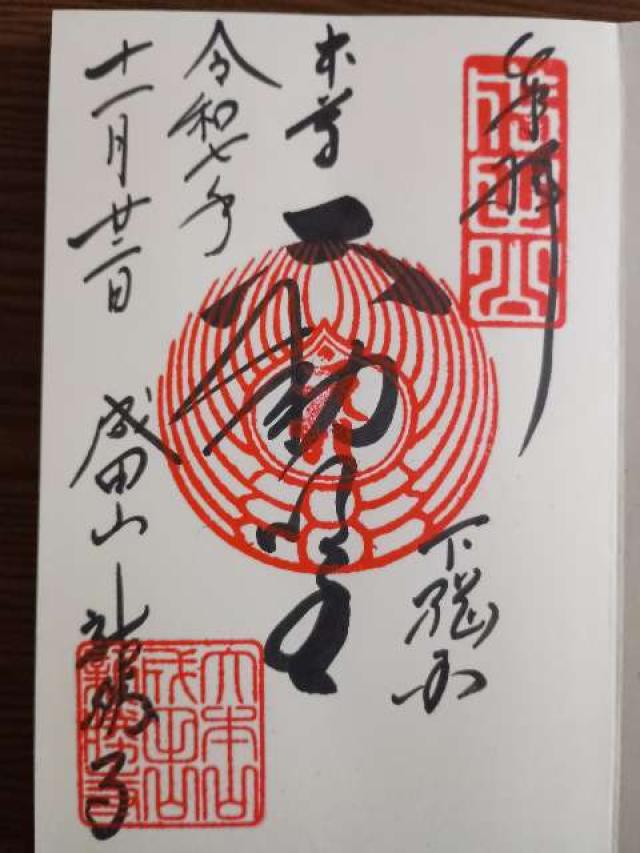 奉拝
成田山
下総国
本尊
不動明王
令和七年
十一月廿二日
成田山 新勝寺
大本山
成田山
新勝寺